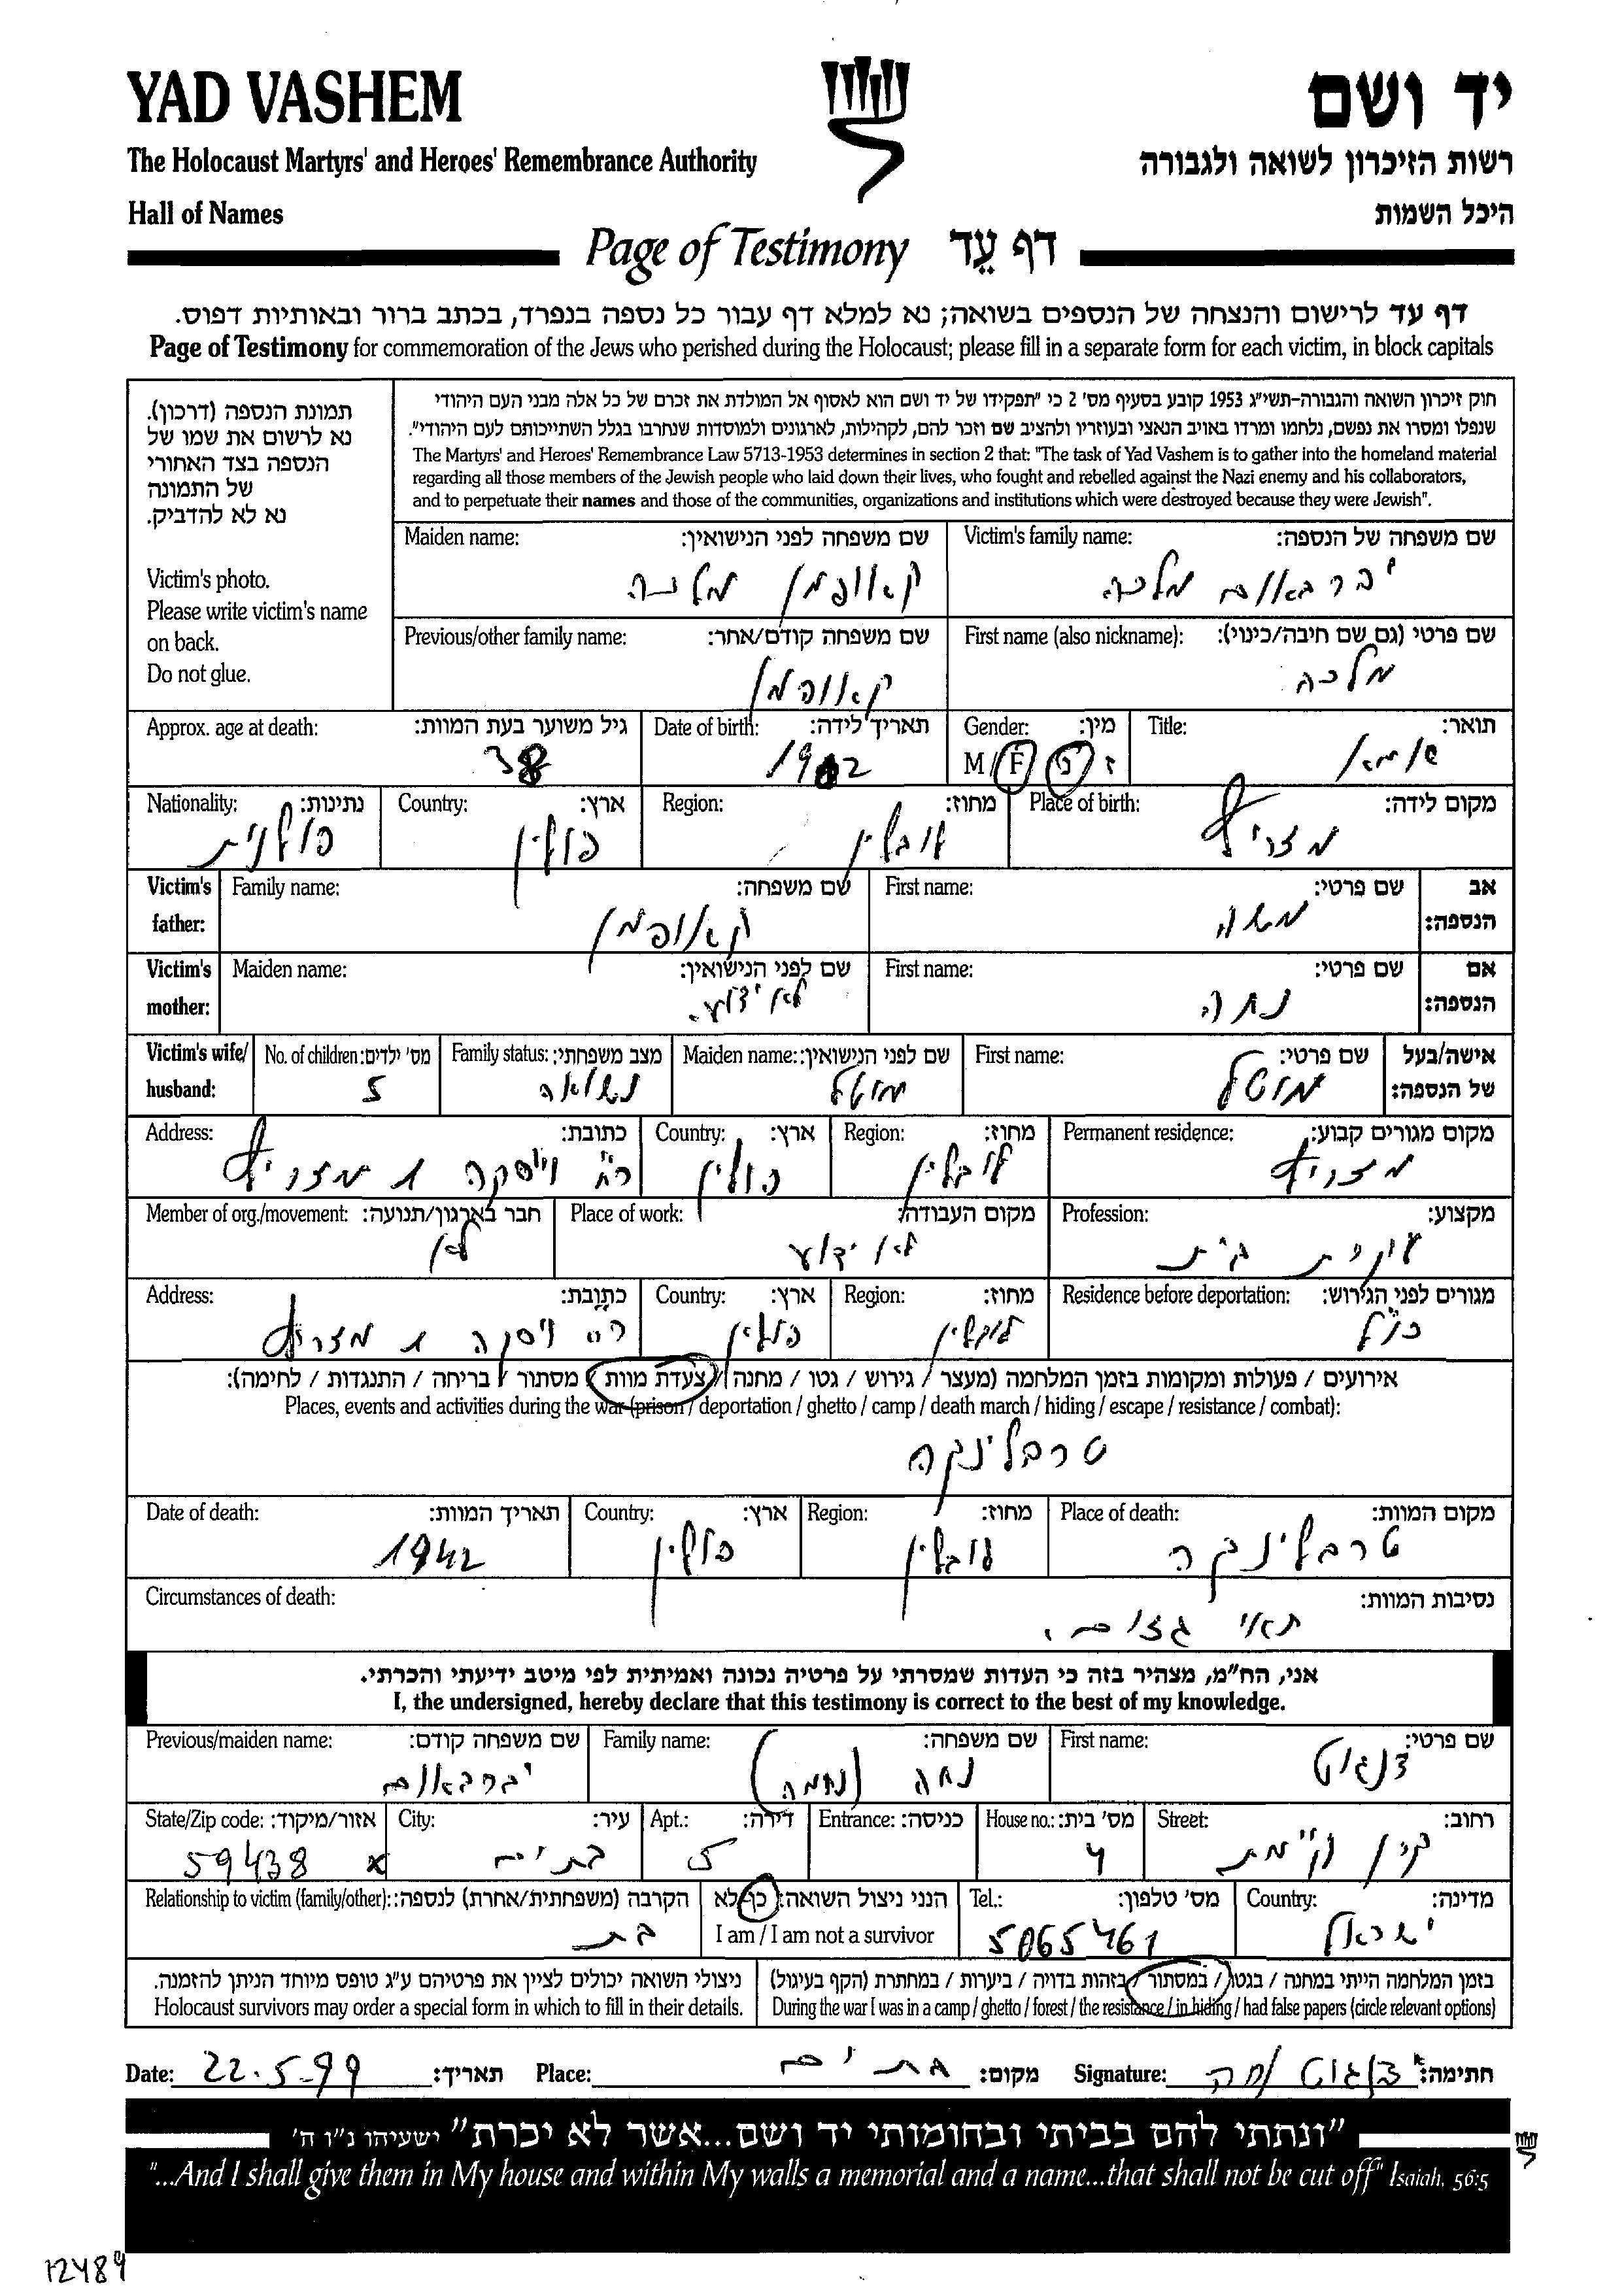 YAD VASHEM
יד ושם
The Holocaust Martyrs' and Heroes' Remembrance Authority
רשות הזיכרון לשואה ולגבורה
Hall of Names
היכל השמות
Page of Testimony דף עֵד
דף עד לרישום והנצחה של הנספים בשואה; נא למלא דף עבור כל נספה בנפרד, בכתב ברור ובאותיות דפוס.
Page of Testimony for commemoration of the Jews who perished during the Holocaust; please fill in a separate form for each victim, in block capitals
תמונת הנספה (דרכון).
נא לרשום את שמו של
הנספה בצד האחורי
של התמונה
נא לא להדביק.
Victim's photo.
Please write victim's name
on back.
Do not glue.
חוק זיכרון השואה והגבורה-תשי״ג 1953 קובע בסעיף מס' 2 כי "תפקידו של יד ושם הוא לאסוף אל המולדת את זכרם של כל אלה מבני העם היהודי
שנפלו ומסרו את נפשם, נלחמו ומרדו באויב הנאצי ובעוזריו ולהציב שם וזכר להם, לקהילות, לארגונים ולמוסדות שנחרבו בגלל השתייכותם לעם היהודי".
The Martyrs' and Heroes' Remembrance Law 5713-1953 determines in section 2 that: "The task of Yad Vashem is to gather into the homeland material
regarding all those members of the Jewish people who laid down their lives, who fought and rebelled against the Nazi enemy and his collaborators,
and to perpetuate their names and those of the communities, organizations and institutions which were destroyed because they were Jewish".
Victim's family name: שם משפחה של הנספה:
יברבאום מלכה
Maiden name: שם משפחה לפני הנישואין:
קאופמן מלכה
First name (also nickname): שם פרטי (גם שם חיבה/כינוי):
מלכה
Previous/other family name: שם משפחה קודם/אחר:
קאופמן
Title: תואר:
Gender: מין:
M / F ז נ
Date of birth: תאריך לידה:
1902
Approx. age at death: גיל משוער בעת המוות:
38
Place of birth: מקום לידה:
מזריץ
Region: מחוז:
לובלין
Country: ארץ:
פולין
Nationality: נתינות:
פולנית
Victim's father: אב הנספה:
First name: שם פרטי:
משה
Family name: שם משפחה:
קאופמן
Victim's mother: אם הנספה:
First name: שם פרטי:
נחה
Maiden name: שם לפני הנישואין:
לא ידוע.
Victim's wife/ husband: אישה/בעל של הנספה:
First name: שם פרטי:
מוטל
Maiden name: שם לפני הנישואין:
מוטל
Family status: מצב משפחתי:
נשואה
No. of children: מס' ילדים:
5
Permanent residence: מקום מגורים קבוע:
מזריץ
Region: מחוז:
לובלין
Country: ארץ:
פולין
Address: כתובת:
מזריץ
Profession: מקצוע:
עקרת בית
Place of work: מקום העבודה:
לא ידוע
Member of org./movement: חבר בארגון/תנועה:
לא
Residence before deportation: מגורים לפני הגירוש:
כנ"ל
Region: מחוז:
לובלין
Country: ארץ:
פולין
Address: כתובת:
מזריץ
אירועים / פעולות ומקומות בזמן המלחמה (מעצר / גירוש / גטו / מחנה / צעדת מוות / מסתור / בריחה / התנגדות / לחימה):
Places, events and activities during the war (prison / deportation / ghetto / camp / death march / hiding / escape / resistance / combat):
טרבלינקה
Place of death: מקום המוות:
טרבלינקה
Region: מחוז:
לובלין
Country: ארץ:
פולין
Date of death: תאריך המוות:
1942
Circumstances of death: נסיבות המוות:
תאי גזים.
אני, הח״מ, מצהיר בזה כי העדות שמסרתי על פרטיה נכונה ואמיתית לפי מיטב ידיעתי והכרתי.
I, the undersigned, hereby declare that this testimony is correct to the best of my knowledge.
First name: שם פרטי:
זנגוט
Family name: שם משפחה:
נחה (נחמה)
Previous/maiden name: שם משפחה קודם:
יברבאום
Street: רחוב:
קרן ק"ימת
House no.: מס' בית:
4
Entrance: כניסה:
Apt.: דירה:
5
City: עיר:
בת ים
State/Zip code: אזור/מיקוד:
59438
Country: מדינה:
ישראל
Tel.: מס' טלפון:
5065461
הנני ניצול השואה: כן-לא
I am / I am not a survivor
Relationship to victim (family/other): הקרבה (משפחתית/אחרת) לנספה:
בת
בזמן המלחמה הייתי במחנה / בגטו / במסתור / בזהות בדויה / ביערות / במחתרת (הקף בעיגול)
During the war I was in a camp / ghetto / forest / the resistance / in hiding / had false papers (circle relevant options)
ניצולי השואה יכולים לציין את פרטיהם ע״ג טופס מיוחד הניתן להזמנה.
Holocaust survivors may order a special form in which to fill in their details.
Date: 22.5.99 תאריך: Place: בת ים מקום: Signature: זנגוט נחה חתימה:
"ונתתי להם בביתי ובחומותי יד ושם...אשר לא יכרת" ישעיהו נ״ו ה'
"...And I shall give them in My house and within My walls a memorial and a name...that shall not be cut off" Isaiah, 56:5